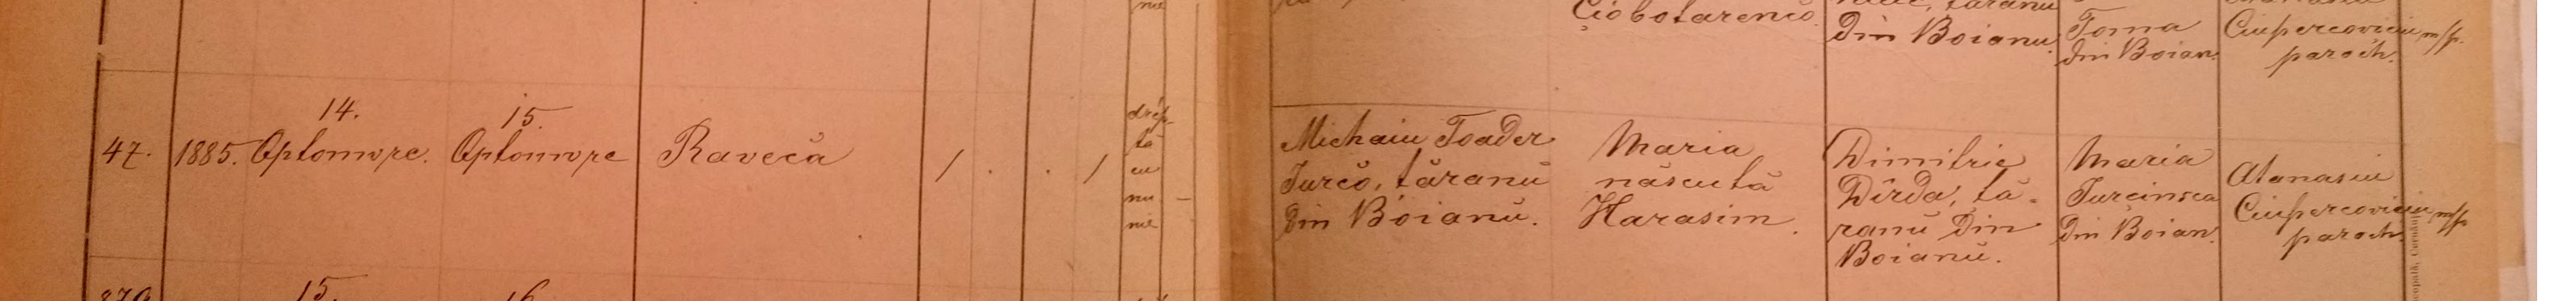 nie
Ciobotarencŭ.
Din Boianu.
Toma
Din Boian.
Ciupercoviciu m/p.
paroch.
47.
1885.
14.
Optomvre.
15.
Optomvre
Raveca
/ . . /
drép-
tă
cu
nu
nie
Michaiu Toader
Turcŏ, tăranŭ
Din Boianŭ.
Maria
născută
Harasim.
Dimitrie
Dîrda, tă-
ranŭ Din
Boianŭ.
Maria
Turcinsca
Din Boian.
Atanasiu
Ciupercoviciu m/p
paroch.
15.
16